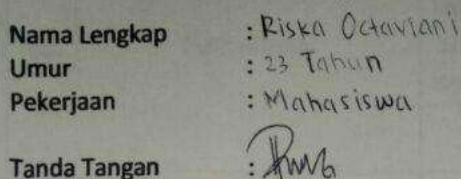 Nama Lengkap : Riska Octaviani
Umur : 23 Tahun
Pekerjaan : Mahasiswa
Tanda Tangan :